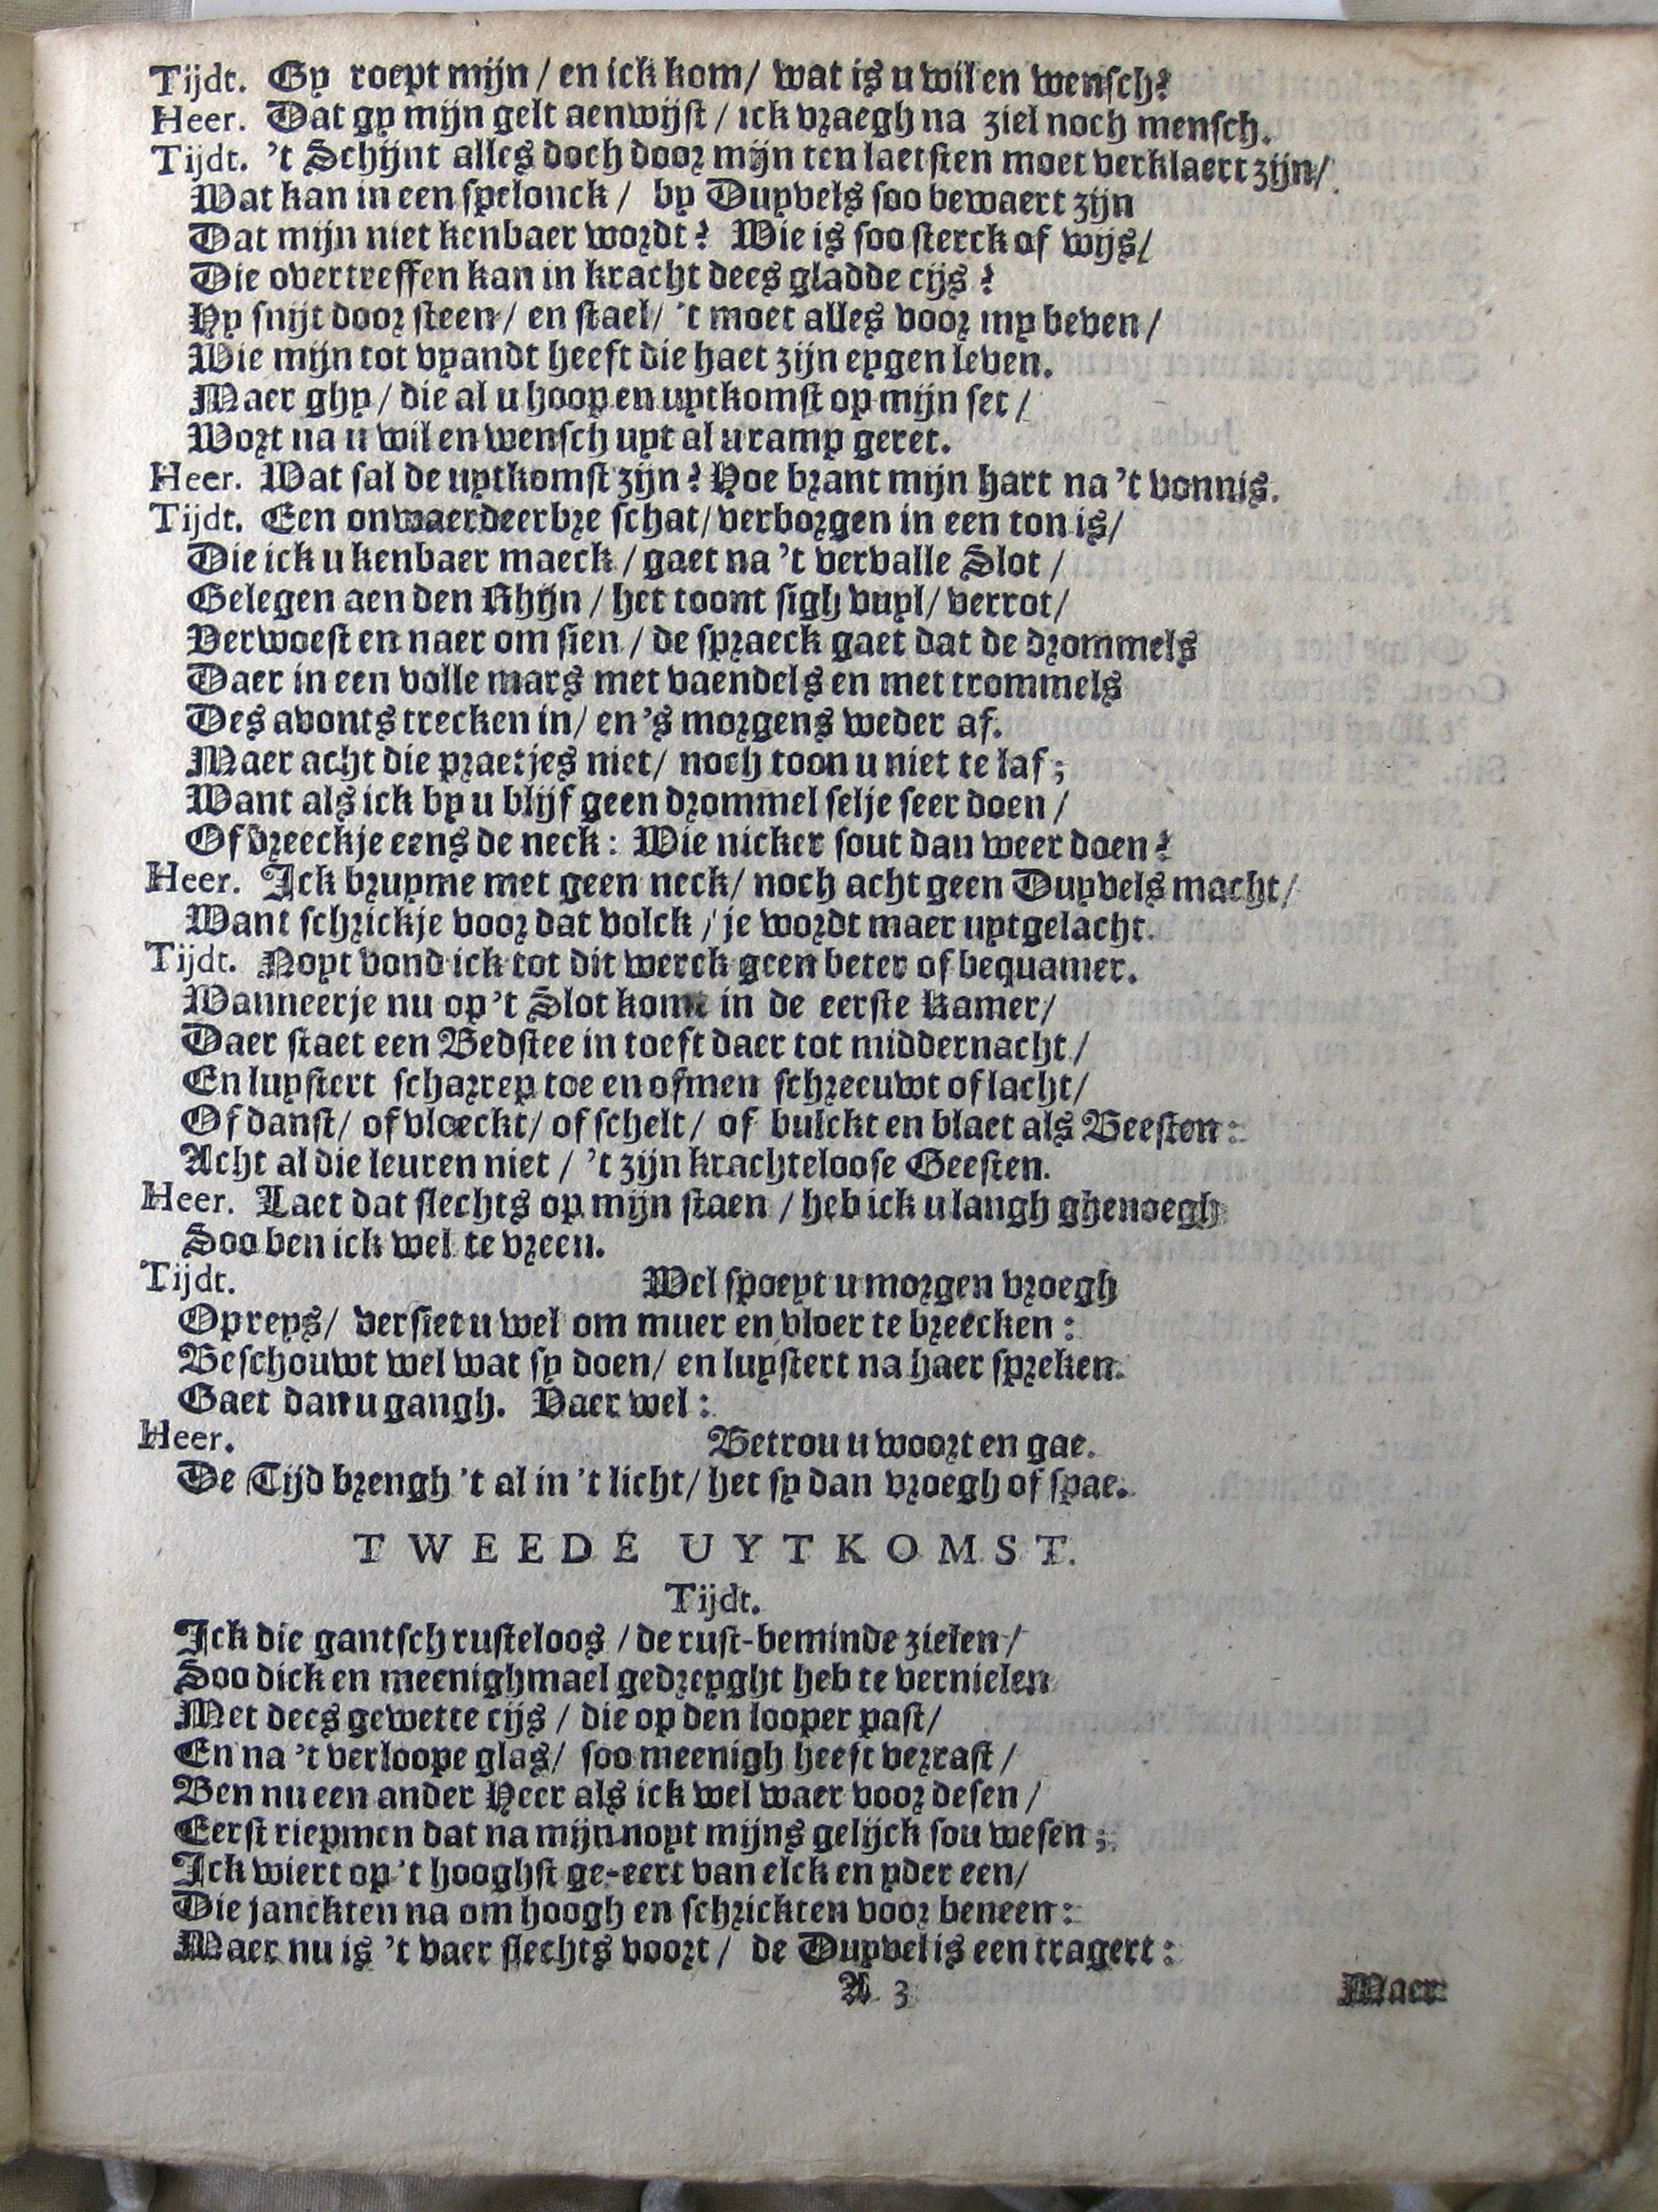 Tijdt. Gy roept mijn / en ick kom / wat is u wil en wensch?
Heer. Dat gy mijn gelt aenwijst / ick vraegh na ziel noch mensch.
Tijdt. 't Schijnt alles doch door mijn ten laetsten moet verklaert zijn /
Wat kan in een spelonck / by Duyvels soo bewaert zijn
Dat mijn niet kenbaer wordt? Wie is soo sterck of wijs /
Die overtreffen kan in kracht dees gladde cijs?
Hy snijt door steen / en stael / 't moet alles voor my beven /
Wie mijn tot vyandt heeft die haet zijn eygen leven.
Maer ghy / die al u hoop en uytkomst op mijn set /
Wort na u wil en wensch uyt al u ramp geret.
Heer. Wat sal de uytkomst zijn? Hoe brant mijn hart na 't vonnis.
Tijdt. Een onwaerdeerbre schat / verborgen in een ton is /
Die ick u kenbaer maeck / gaet na 't vervalle Slot /
Gelegen aen den Rhijn / het toont sigh vuyl / verrot /
Verwoest en naer om sien / de spraeck gaet dat de drommels
Daer in een volle mars met vaendels en met trommels
Des avonts trecken in / en 's morgens weder af.
Maer acht die praetjes niet / noch toon u niet te laf;
Want als ick by u blijf geen drommel selje seer doen /
Of breeckje eens de neck: Wie nicker sout dan weer doen?
Heer. Ick bruyme met geen neck / noch acht geen Duyvels macht /
Want schrickje voor dat volck / je wordt maer uytgelacht.
Tijdt. Noyt vond ick tot dit werck geen beter of bequamer.
Wanneerje nu op 't Slot komt in de eerste kamer /
Daer staet een Bedstee in toeft daer tot middernacht /
En luystert scharrep toe en ofmen schreeuwt of lacht /
Of danst / of vloeckt / of schelt / of bulckt en blaet als Beesten:
Acht al die leuren niet / 't zijn krachteloose Geesten.
Heer. Laet dat slechts op mijn staen / heb ick u langh ghenoegh
Soo ben ick wel te vreen.
Tijdt. Wel spoeyt u morgen vroegh
Op reys / versiet u wel om muer en vloer te breecken:
Beschouwt wel wat sy doen / en luystert na haer spreken.
Gaet dan u gangh. Vaer wel:
Heer. Betrou u woort en gae.
De Tijd brengh 't al in 't licht / het sy dan vroegh of spae.
TWEEDE UYTKOMST.
Tijdt.
Ick die gantsch rusteloos / de rust-beminde zielen /
Soo dick en meenighmael gedreyght heb te vernielen
Met dees gewette cijs / die op den looper past /
En na 't verloope glas / soo meenigh heeft verrast /
Ben nu een ander Heer als ick wel waer voor desen /
Eerst riepmen dat na mijn noyt mijns gelijck sou wesen;
Ick wiert op 't hooghst ge-eert van elck en yder een /
Die janckten na om hoogh en schrickten voor beneen:
Maer nu is 't vaer slechts voort / de Duyvel is een tragert:
A 3 Maer